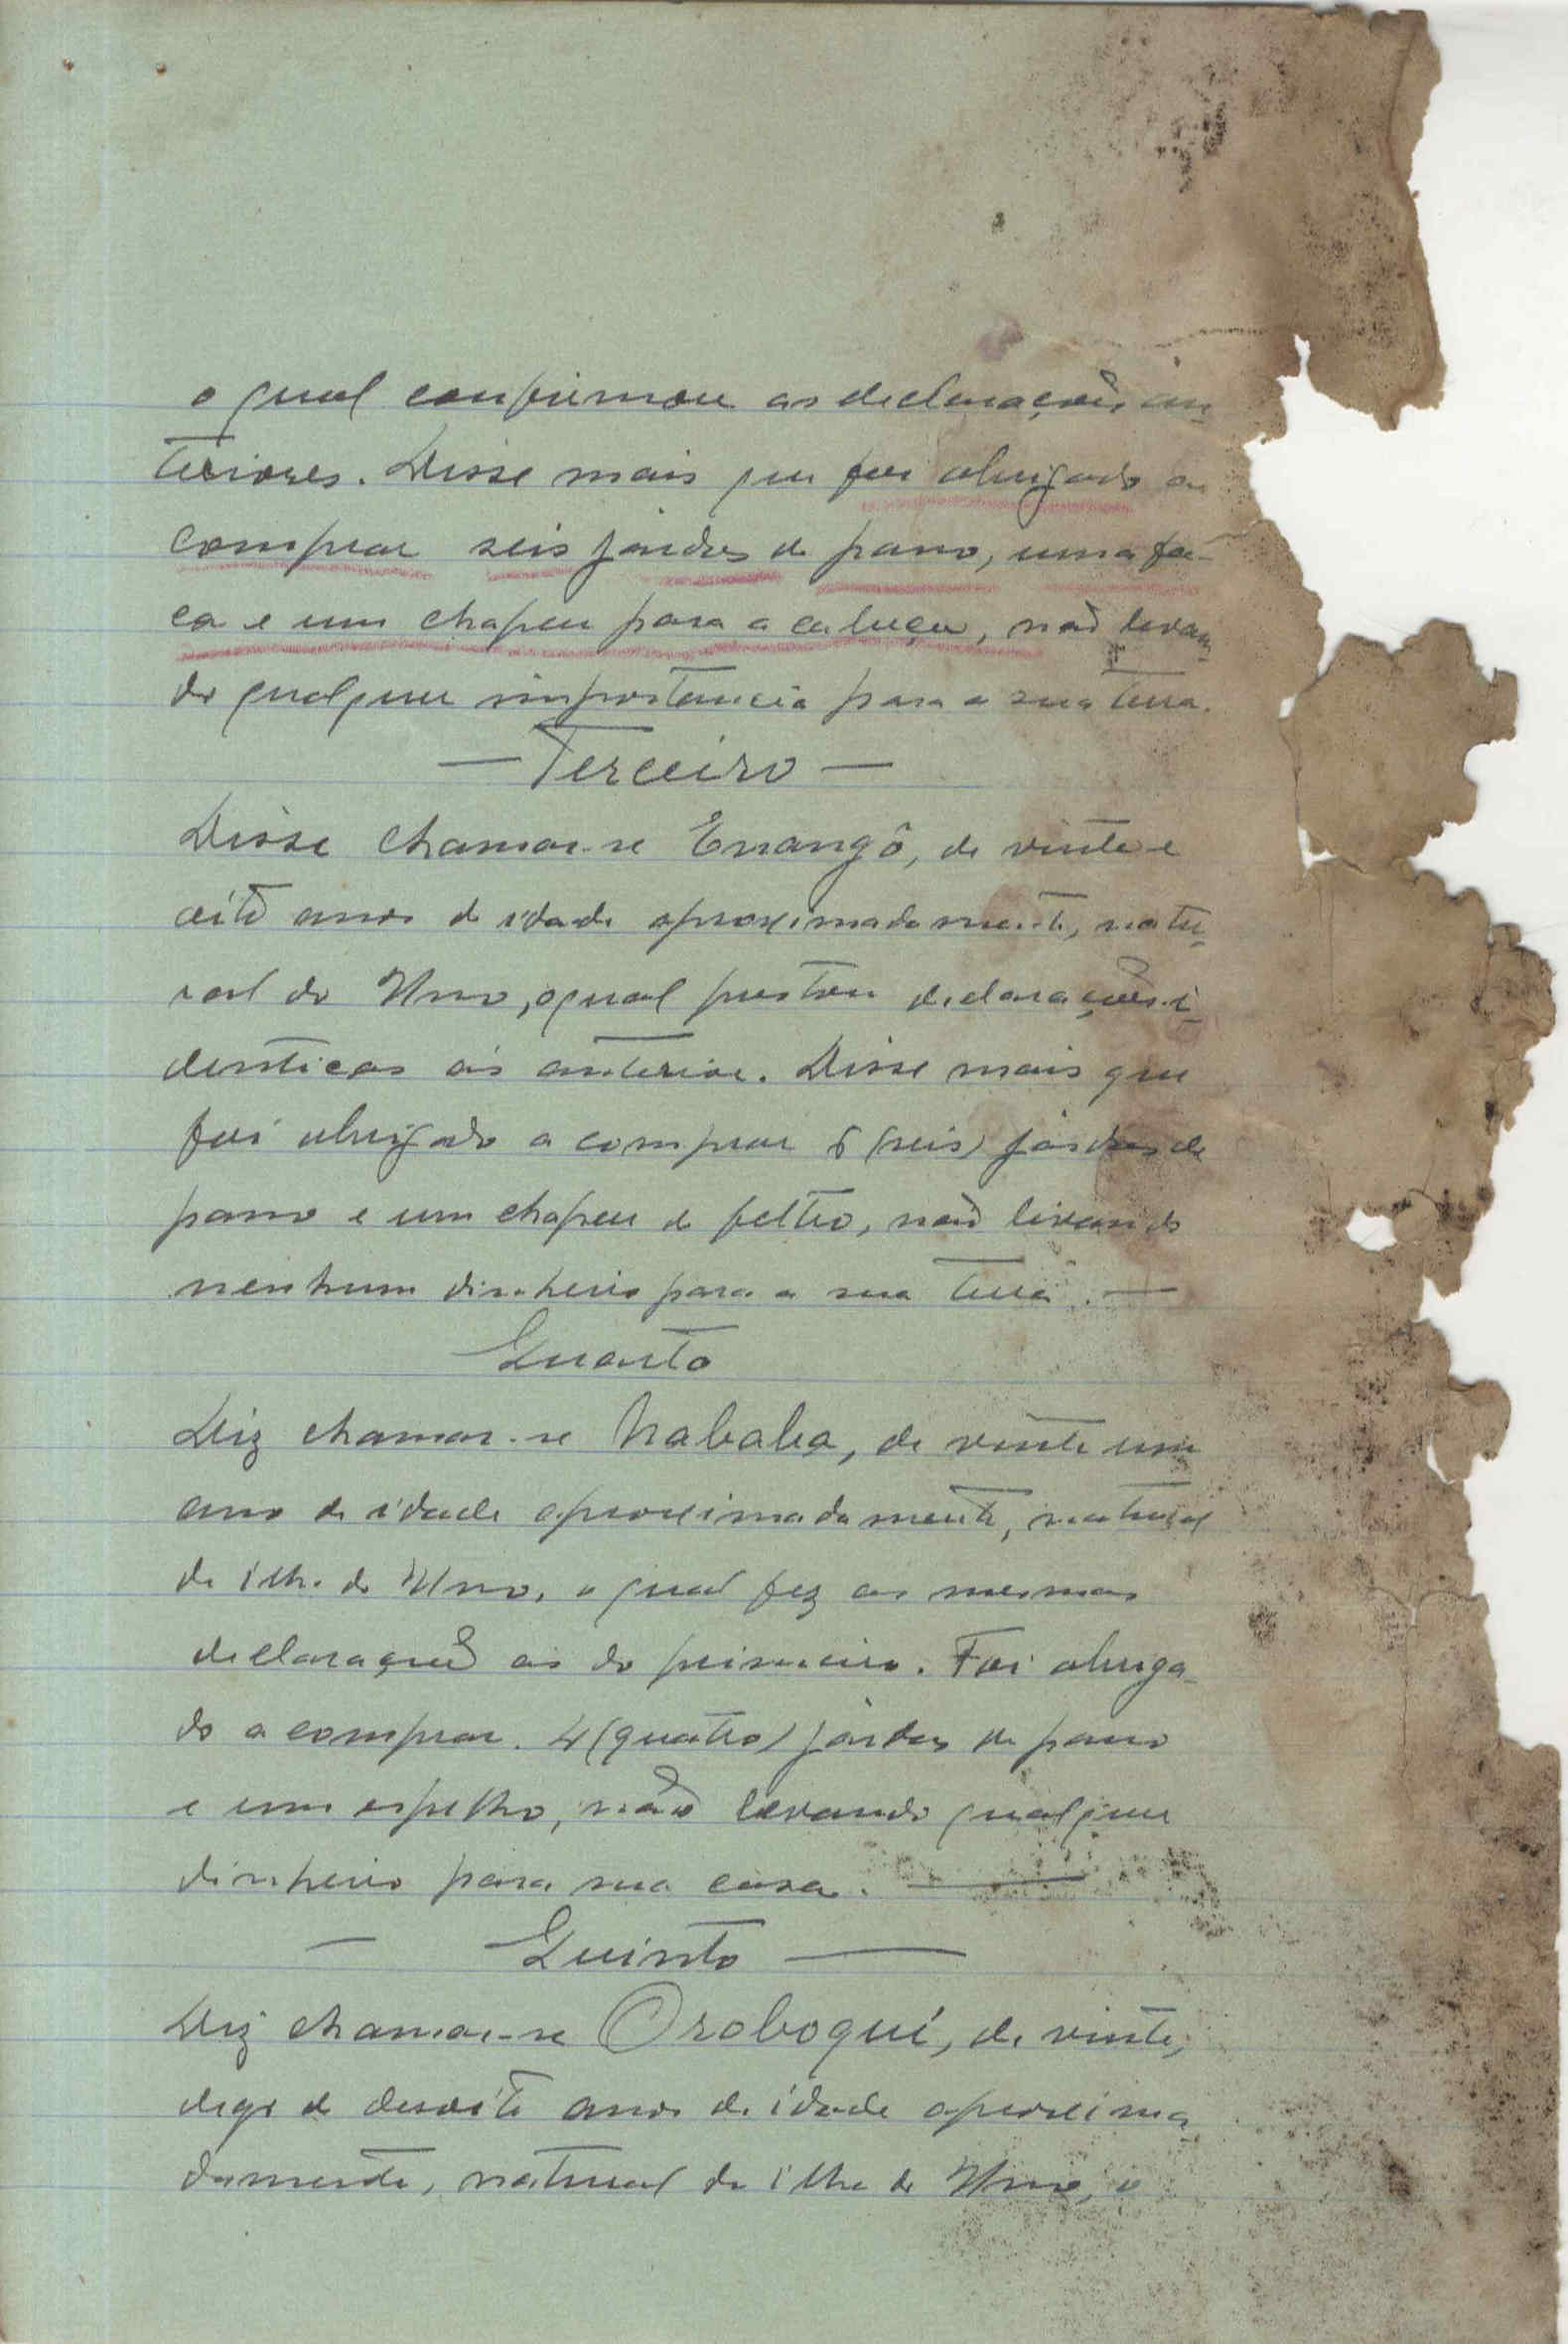 o qual confirmou as declarações an-
teriores. Disse mais que foi obrigado a
comprar seis járdas de pano, uma fa-
ca e um chapeu para a cabeça, não levan-
do qualquer importancia para a sua terra.
— Terceiro —
Disse chamar-se Enangô, de vinte e
oito anos de idade aproximadamente, natu-
ral do Uno, o qual prestou declarações i-
denticas ás anterior. Disse mais que
foi obrigado a comprar 6 (seis) járdas de
pano e um chapeu de feltro, não levando
nenhum dinheiro para a sua terra. —
Quarto
Diz chamar-se Nababa, de vinte um
ano de idade aproximadamente, natural
da ilha de Uno, o qual fez as mesmas
declarações ás do primeiro. Foi obriga-
do a comprar 4 (quatro) járdas de pano
e um espelho, não levando qualquer
dinheiro para sua casa. —
— Quinto —
Diz chamar-se Oroboqui, de vinte,
digo de desoito anos de idade aproxima-
damente, natural da ilha de Uno, o